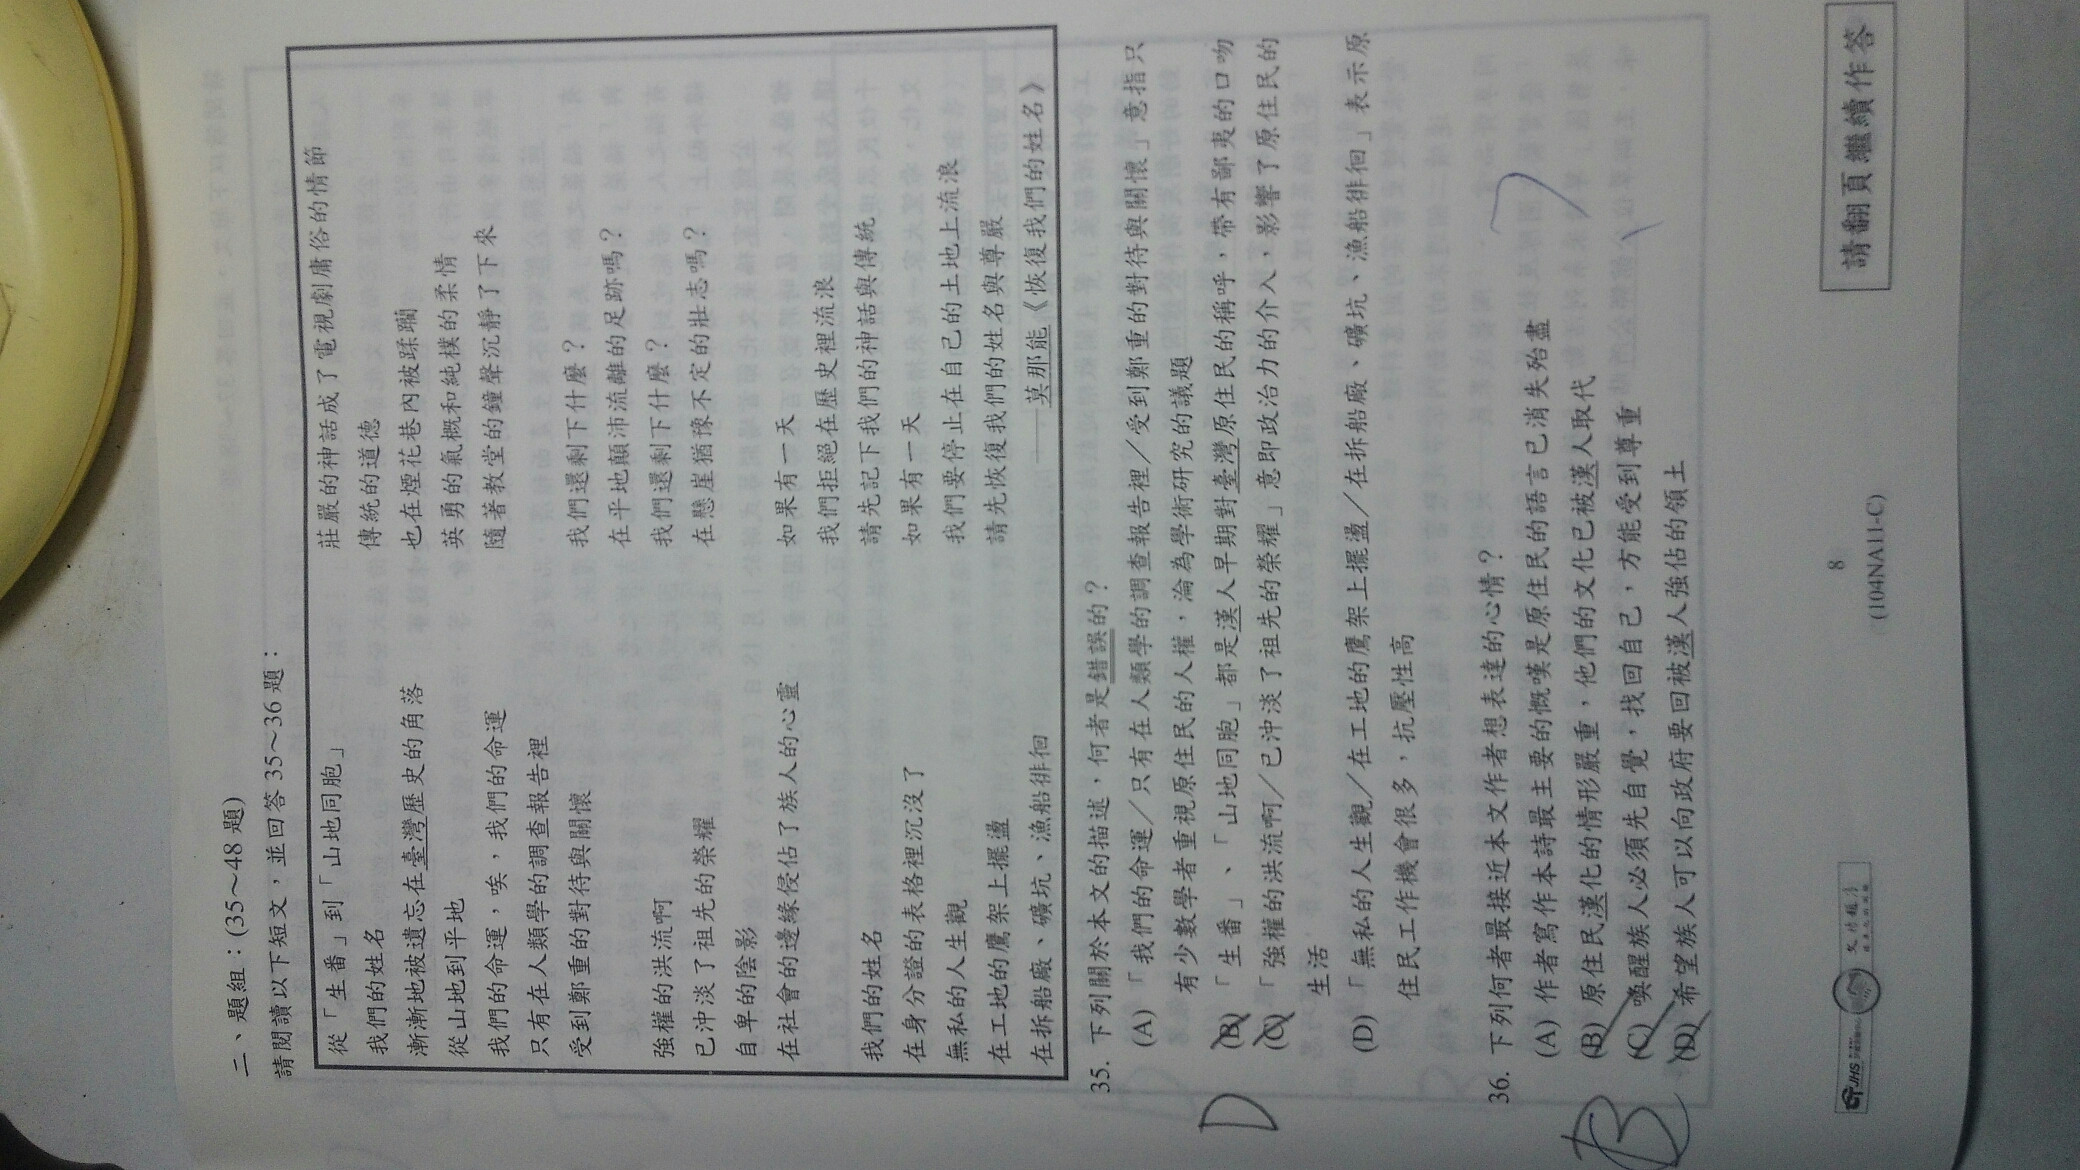 二、題組：(35～48 題)
請閱讀以下短文，並回答 35～36 題：
從「生番」到「山地同胞」
我們的姓名
漸漸地被遺忘在臺灣歷史的角落
從山地到平地
我們的命運，唉，我們的命運
只有在人類學的調查報告裡
受到鄭重的對待與關懷
強權的洪流啊
已沖淡了祖先的榮耀
自卑的陰影
在社會的邊緣侵佔了族人的心靈
我們的姓名
在身分證的表格裡沉沒了
無私的人生觀
在工地的鷹架上擺盪
在拆船廠、礦坑、漁船徘徊
莊嚴的神話成了電視劇庸俗的情節
傳統的道德
也在煙花巷內被蹂躪
英勇的氣概和純樸的柔情
隨著教堂的鐘聲沉靜了下來
我們還剩下什麼？
在平地顛沛流離的足跡嗎？
我們還剩下什麼？
在懸崖猶豫不定的壯志嗎？
如果有一天
我們拒絕在歷史裡流浪
請先記下我們的神話與傳統
如果有一天
我們要停止在自己的土地上流浪
請先恢復我們的姓名與尊嚴
——莫那能《恢復我們的姓名》
35. 下列關於本文的描述，何者是錯誤的？
(A)「我們的命運／只有在人類學的調查報告裡／受到鄭重的對待與關懷」意指只
有少數學者重視原住民的人權，淪為學術研究的議題
(B)「生番」、「山地同胞」都是漢人早期對臺灣原住民的稱呼，帶有鄙夷的口吻
(C)「強權的洪流啊／已沖淡了祖先的榮耀」意即政治力的介入，影響了原住民的
生活
(D)「無私的人生觀／在工地的鷹架上擺盪／在拆船廠、礦坑、漁船徘徊」表示原
住民工作機會很多，抗壓性高
D
36. 下列何者最接近本文作者想表達的心情？
(A) 作者寫作本詩最主要的慨嘆是原住民的語言已消失殆盡
(B) 原住民漢化的情形嚴重，他們的文化已被漢人取代
(C) 喚醒族人必須先自覺，找回自己，方能受到尊重
(D) 希望族人可以向政府要回被漢人強佔的領土
B
JHS
8
(104NA11-C)
請翻頁繼續作答